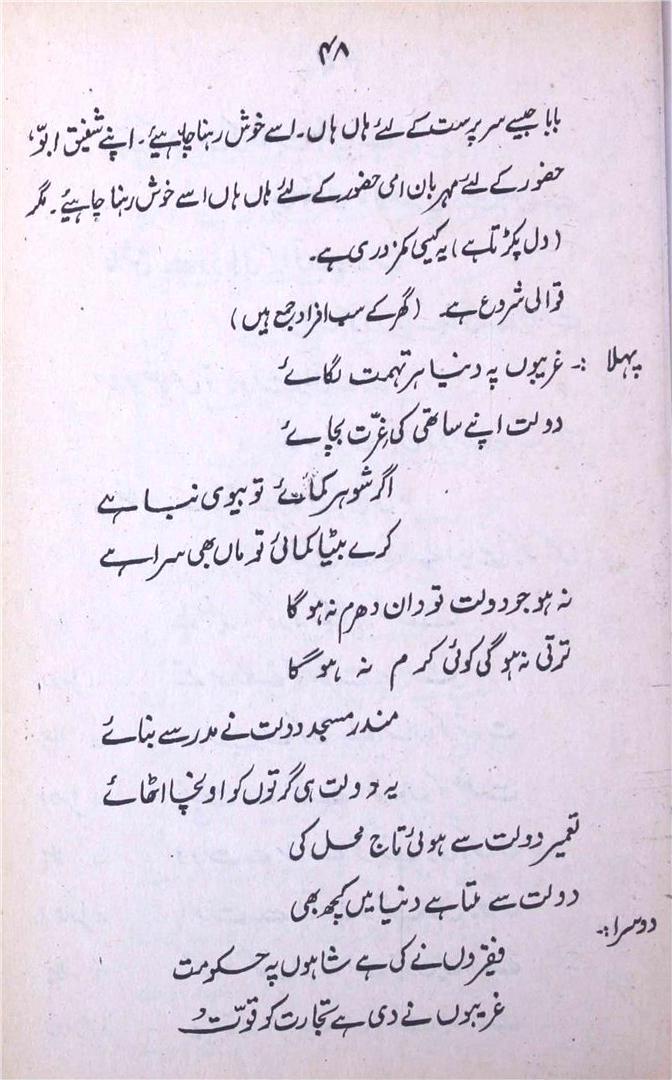 ۴۸
بابا جیسے سرپرست کے لئے ہاں ہاں۔ اسے خوش رہنا چاہیئے۔ اپنے شفیق ابّو،
حضور کے لئے مہربان امی حضور کے لئے ہاں ہاں اسے خوش رہنا چاہیئے۔ مگر
(دل پکڑتا ہے) یہ کیسی کمزوری ہے۔
قوالی شروع ہے (گھر کے سب افراد جمع ہیں)
پہلا :۔ غریبوں پہ دنیا ہر تہمت لگائے
دولت اپنے ساتھی کی عزّت بچائے
اگر شوہر کمائے تو بیوی نبا ہے
کرے بیٹا کمائی تو ماں بھی سراہے
نہ ہو جو دولت تو دان دھرم نہ ہو گا
ترتی نہ ہو گی کوئی کرم نہ ہو گا
مندر مسجد دولت نے مدرسے بنائے
یہ دولت ہی گرتوں کو اونچا اٹھائے
تعمیر دولت سے ہوئی تاج محل کی
دولت سے ملتا ہے دنیا میں کچھ بھی
دوسرا :۔
فقیروں نے کی ہے شاہوں پہ حکومت
غریبوں نے دی ہے تجارت کو قوّت و